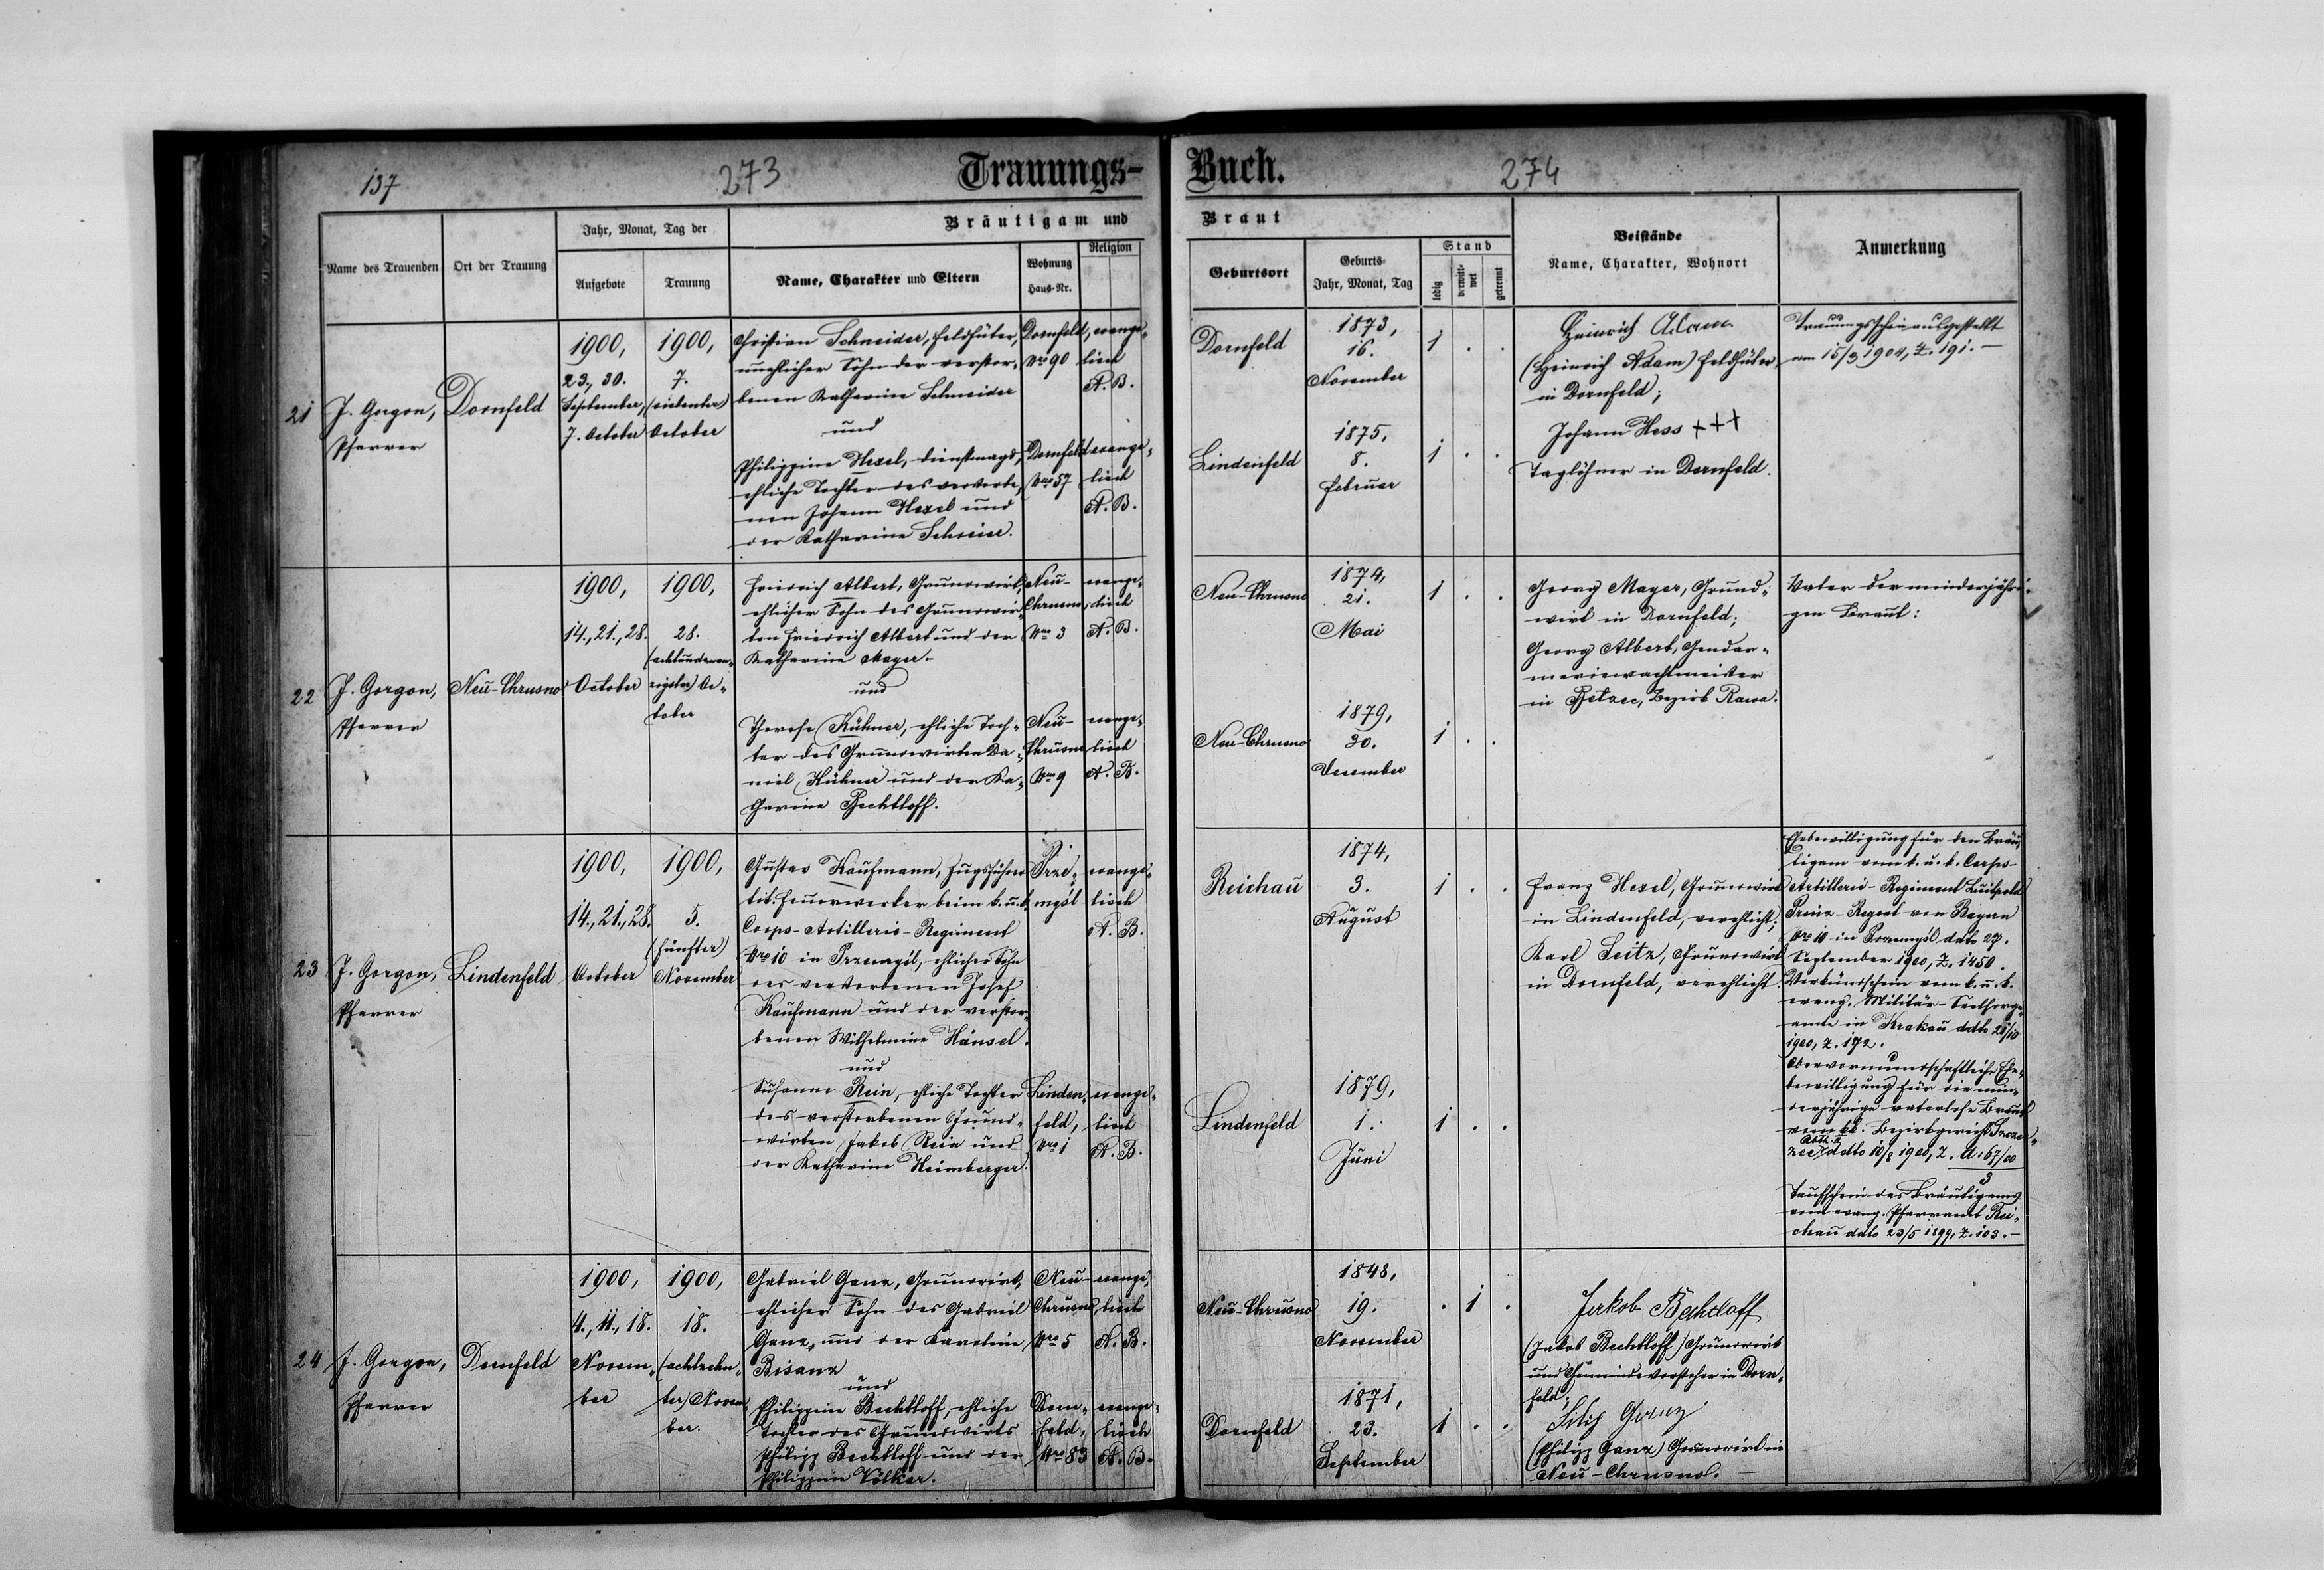 137
273
Trauungs-
Buch.
274
Bräutigam und
Braut
Name des Trauenden
Ort der Trauung
Jahr, Monat, Tag der
Aufgebote
Trauung
Name, Charakter und Eltern
Wohnung
Haus-Nr.
Religion
Geburtsort
Geburts-
Jahr, Monat, Tag
Stand
ledig
verwitt-
wet
getrennt
Beistände
Name, Charakter, Wohnort
Anmerkung
21
J. Gorgon,
Pfarrer
Dornfeld
1900,
23., 30.
September,
7. October
1900,
7.
(siebenter)
October
Christian Schneider, Feldhüter,
unehlicher Sohn der verstor-
benen Katharina Schneider
und
Philippine Hexel, Dienstmagd,
ehliche Tochter des verstorbe-
nen Johann Hexel und
der Katharina Schreier.
Dornfeld,
Nro 90
Dornfeld
Nro 57
evange-
lisch
A. B.
evange-
lisch
A. B.
Dornfeld
1873,
16.
November
1 . .
Lindenfeld
1875,
8.
Februar
1 . .
Heinrich Adam
(Heinrich Adam) Feldhüter
in Dornfeld;
Johann Hess +++
Taglöhner in Dornfeld.
Trauungsschein ausgestellt
am 15/3 1904, Z. 191. —
22
J. Gorgon,
Pfarrer
Neu-Chrusno
1900,
14., 21., 28.
October
1900,
28.
(achtundzwan-
zigster) Oc-
tober
Friedrich Albert, Grundwirt,
ehlicher Sohn des Grundwir-
ten Friedrich Albert und der
Katharina Mayer.
und
Therese Kühner, ehliche Toch-
ter des Grundwirten Da-
niel Kühner und der Ka-
tharina Bechtloff.
Neu-
Chrusno,
Nro 3
Neu-
Chrusno
Nro 9
evange-
lisch
A. B.
evange-
lisch
A. B.
Neu-Chrusno
1874,
21.
Mai
1 . .
Neu-Chrusno
1879,
30.
December
1 . .
Georg Mayer, Grund-
wirt in Dornfeld;
Georg Albert, Gendar-
meriewachtmeister
in Belzec, Bezirk Rawa.
Vater der minderjähri-
gen Braut:
23
J. Gorgon,
Pfarrer
Lindenfeld
1900,
14., 21., 28.
October
1900,
5.
(fünfter)
November
Gustav Kaufmann, Zugsführer
tit. Feuerwerker beim k.u.k.
Corps-Artillerie-Regiment
Nro 10 in Przemyśl, ehlicher Sohn
des verstorbenen Josef
Kaufmann und der verstor-
benen Wilhelmine Hänsel.
und
Susanna Rein, ehliche Tochter
des verstorbenen Grund-
wirten Jakob Rein und
der Katharina Heimberger.
Prze-
myśl
Linden-
feld,
Nro 1
evange-
lisch
A. B.
evange-
lisch
A. B.
Reichau
1874,
3.
August
1 . .
Lindenfeld
1879,
1.
Juni
1 . .
Franz Hexel, Grundwirt
in Lindenfeld, verehlicht;
Karl Seitz, Grundwirt
in Dornfeld, verehlicht.
Ehebewilligung für den Bräu-
tigam vom k. u. k. Corps-
Artillerie-Regiment Luitpold
Prinz-Regent von Bayern
Nro 10 in Przemyśl ddto 27.
September 1900, Z. 1450.
Verkündschein vom k. u. k.
evang. Militär-Seelsorge-
amte in Krakau ddto 28/10
1900, Z. 172.
Obervormundschaftliche Ehe-
bewilligung für die min-
derjährige vaterlose Braut
vom k.k. Bezirksgericht Szczer-
zec Abth. I ddto 10/8 1900, Z. A. 67/00
3
Taufschein des Bräutigams
vom evang. Pfarramt Rei-
chau ddto 23/5 1899, Z. 103. —
24
J. Gorgon,
Pfarrer
Dornfeld
1900,
4., 11., 18.
Novem-
ber
1900,
18.
(achtzehn-
ter) Novem-
ber.
Gabriel Ganz, Grundwirt,
ehlicher Sohn des Gabriel
Ganz, und der Karoline
Bisanz
und
Philippine Bechtloff, ehliche
Tochter des Grundwirts
Philipp Bechtloff und der
Philippine Völker.
Neu-
Chrusno,
Nro 5
Dorn-
feld,
Nro 83
evange-
lisch
A. B.
evange-
lisch
A. B.
Neu-Chrusno
1848,
19.
November
. 1 .
Dornfeld
1871,
23.
September
1 . .
Jakob Bechtloff
(Jakob Bechtloff) Grundwirt
und Gemeindevorsteher in Dorn-
feld;
Filip Ganz
(Philipp Ganz) Grundwirt in
Neu-Chrusno. —